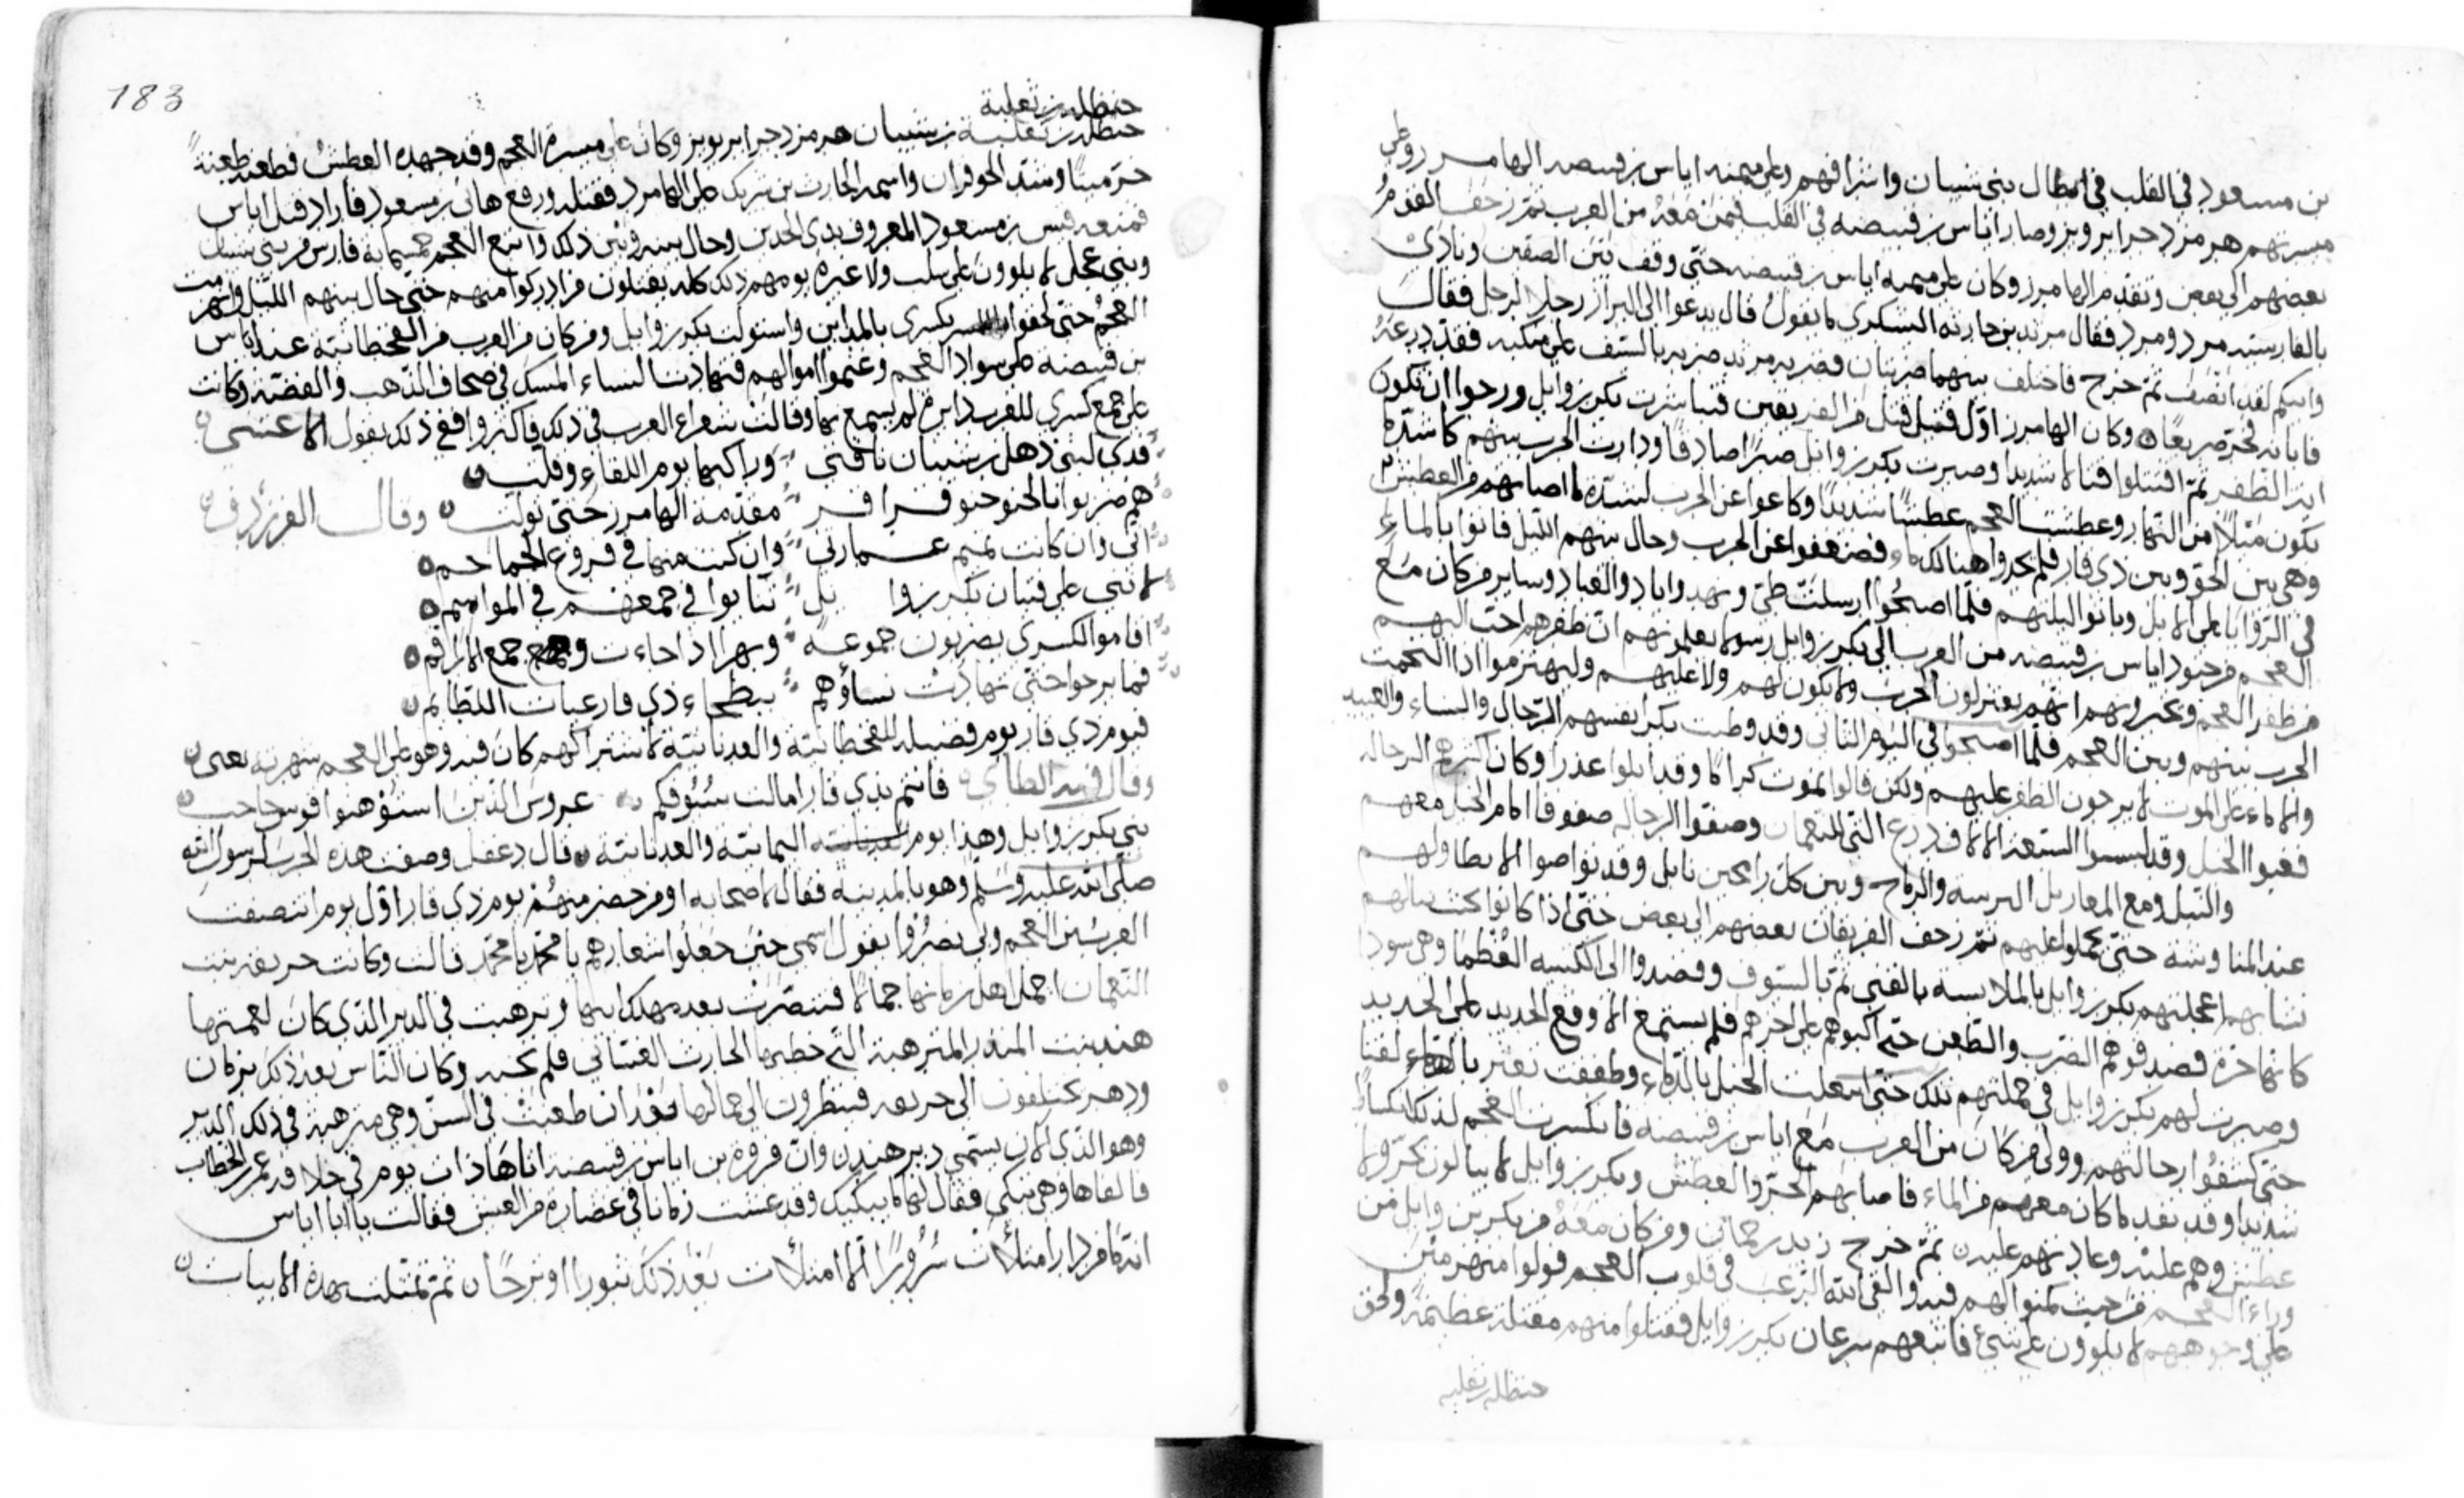 بن مسعود في القلب في ابطال بني شيبان واشرافهم وعلى ميمنه اياس بن قبيصه الهامرز وعلى
ميسرتهم هرمزد جرابرويز وصار اياس بن قبيصه في القلب فيمن معه من العرب ثم زحف القوم
بعضهم الى بعض وتقدم الهامرز وكان على ميمنه اياس بن قبيصه حتى وقف بين الصفين ونادى
بالفارسيه مرد ومرد فقال مرثد بن حارثه اليشكري ما يقول قال يدعوا الى البراز رجلا لرجل فقال
وابيكم لقد انصف ثم خرج فاختلف بينهما ضربتان فضربه مرثد ضربه بالسيف على منكبه فقد درعه
فابانه فخر صريعا وكان الهامرز اول قتيل قتل من الفريقين فتباشرت بكر بن وايل ورجوا ان يكون
ابدا الظفر ثم اقتتلوا قتالا شديدا وصبرت بكر بن وايل صبرا صادقا ودارت الحرب بينهم كاشد ما
يكون مثلا من النهار وعطشت العجم عطشا شديدا وكاعوا عن الحرب لشده ما اصابهم من العطش
وهي بين الحق وبين ذي قار فلم يجدوا هنالك ماء فضعفوا عن الحرب وحال بينهم الليل فاتوا بالماء
في الروايا على الابل وباتوا ليلتهم فلما اصبحوا ارسلت طي وبهد واياد والعباد وساير من كان مع
العجم من جنود اياس بن قبيصه من العرب الى بكر بن وايل رسولا يعلمونهم ان ظفرهم احب اليهم
من ظفر العجم ويخبرونهم انهم يعتزلون الحرب ولا يكون لهم ولا عليهم ولينهزموا اذا التحمت
الحرب بينهم وبين العجم فلما اصبحوا في اليوم الثاني وقد وطنت بكر انفسهم الرجال والنساء والعبيد
والاماء على الموت لا يرجون الظفر عليهم ولكن قالوا نموت كراما وقد ابلوا عذرا وكان اكثرهم الرجاله
فعبوا الخيل وقد لبسوا السبعه الالاف درع التي للنعمان وصفوا الرجاله صفوفا امام الخيل معهم
والنبل ومع المعابل الترسه والرماح وبين كل رامحين نابل وقد تواصوا الا يطاولهم
عند المناوشه حتى يحملوا عليهم ثم زحف الفريقان بعضهم الى بعض حتى اذا كانوا بحيث ينالهم
نشابهم اعجلتهم بكر بن وايل بالملابسه بالقنى ثم بالسيوف وقصدوا الى الكتيبه العظما وهي سودا
فصدقوهم الضرب والطعن حتى اكبوهم على اخرهم فلم يستمع الا وقع الحديد على الحديد
وصبرت لهم بكر بن وايل في حملتهم تلك حتى انتعلت الخيل بالدماء وطفقت تعثر
حتى كشفوا رجالتهم وولى من كان من العرب مع اياس بن قبيصه فانكسرت العجم لذلك انكسارا
شديدا وقد نفد ما كان معهم من الماء فاصابهم الحر والعطش وبكر بن وايل لا يبالون بحر ولا
عطش وهم عليه وعادتهم عليه ثم خرج زيد بن حماني ومن كان معه من بكر بن وايل من
وراء العجم من حيث كمنوا لهم فيه والقى الله الرعب في قلوب العجم فولوا منهزمين
على وجوههم لا يلوون على شئ فاتبعهم سرعان بكر بن وايل فقتلوا منهم مقتله عظيمة ولحق
حنظله بن ثعلبه
183
حنظله بن ثعلبة
حنظله بن ثعلبة بن شيبان هرمزد جرابرويز وكان على ميسرة العجم وقد جهده العطش فطعنه طعنة
خر ميتا وشد الحوفزان واسمه الحارث بن شريك على الهامرد فقتله ورفع هانى بن مسعود فاراد قتل اياس
فمنعه قيس بن مسعود المعروف بذي الجدين وحال بينه وبين ذلك واتبع العجم خمسمايه فارس من بني شيبان
وبني عجل لا يلوون على سلب ولا غيره يومهم ذلك كله يقتلون من ادركوا منهم حتى حال بينهم الليل وانهزمت
العجم حتى لحقوا بكسرى بالمداين واستولت بكر بن وايل ومن كان من العرب من القحطانيه عند اياس
بن قبيصه على سواد العجم وغنموا اموالهم فتهادت النساء المسك في صحاف الذهب والفضة وكانت
على جمع كسرى للفرس دايره لم يسمع بها وقالت شعراء العرب في ذلك فاكثروا ففي ذلك يقول الاعشى
فدى لبني ذهل بن شيبان ناقتي وراكبها يوم اللقاء وقلت
هم ضربوا بالحنو حنو قراقر مقدمة الهامرز حتى تولت وقال الفرزدق
اني وان كانت تميم عمارتي وان كنت منها في فروع الجماجم
لاثني على فتيان بكر بن وا يل ثنا يوافي جمعهم في المواسم
اقاموا لكسرى يضربون جموعه وبهرا اذا جاءت وجمع الاراقم
فما برحوا حتى تهادت نساؤهم ببطحاء ذي قار عياب اللطايم
فيوم ذي قار يوم فضيله للقحطانية والعدنانية لاشتراكهم كان فيه وهو على العجم
وقال فيه الطاي فانتم بذي قار امالت سيوفكم عروش الذين استرهنوا قوس حاجب
بني بكر بن وايل وهذا يوم اليمانية والعدنانية قال دغفل وصفت هذه الحرب لرسول الله
صلى الله عليه وسلم وهو بالمدينه فقال لاصحابه او من حضر منهم يوم ذي قار اول يوم انتصفت
العرب من العجم وبي نصروا يقول اسمي حين جعلوا شعارهم يا محمد يا محمد قالت وكانت حريقه بنت
النعمان اجمل اهل زمانها جمالا فتنصرت بعد مهلك ابيها وترهبت في الدير الذي كان لعمتها
هند بنت المنذر المترهبة التي خطبها الحارث الغساني فلم تجبه وكان الناس بعد ذلك بزمان
ودهر يختلفون الى حريقه فينظرون الى جمالها بعد ان طعنت في السن وهي مترهبة في ذلك الدير
وهو الذي الان يسمى دير هند وان فروة بن اياس بن قبيصه اتاها ذات يوم في خلافة عمر بن الخطاب
فالفاها وهي تبكي فقال لها ما يبكيك وقد عشت زمانا في غضاره من العيش فقالت يا ابا اياس
انه ما من دار امتلات سرورا الا امتلات بعد ذلك ثبورا او ترحا ثم تمثلت بهذه الابيات